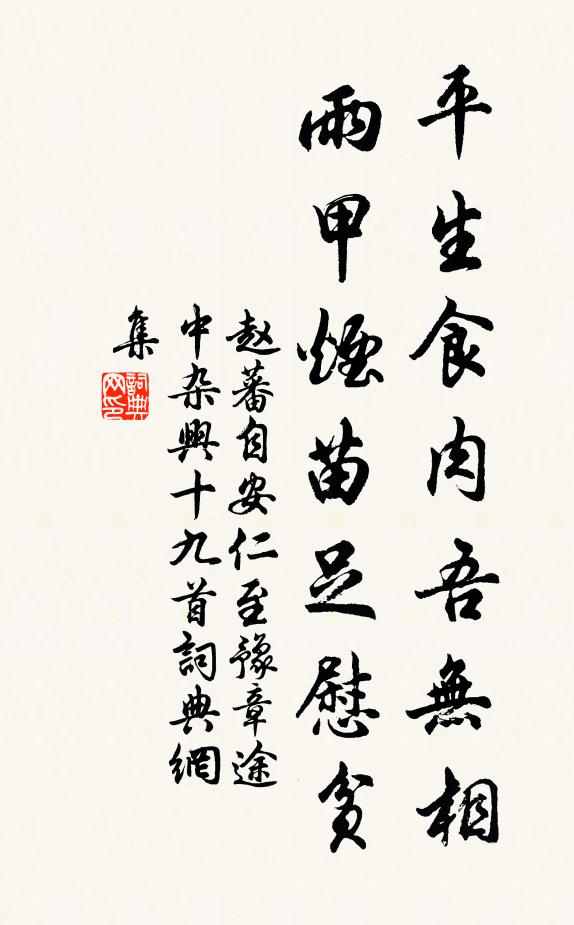 平生食肉吾無相
雨甲煙苗足慰貧
赵蕃自安仁至豫章途
中杂興十九首詞典網
集
詞典
网印